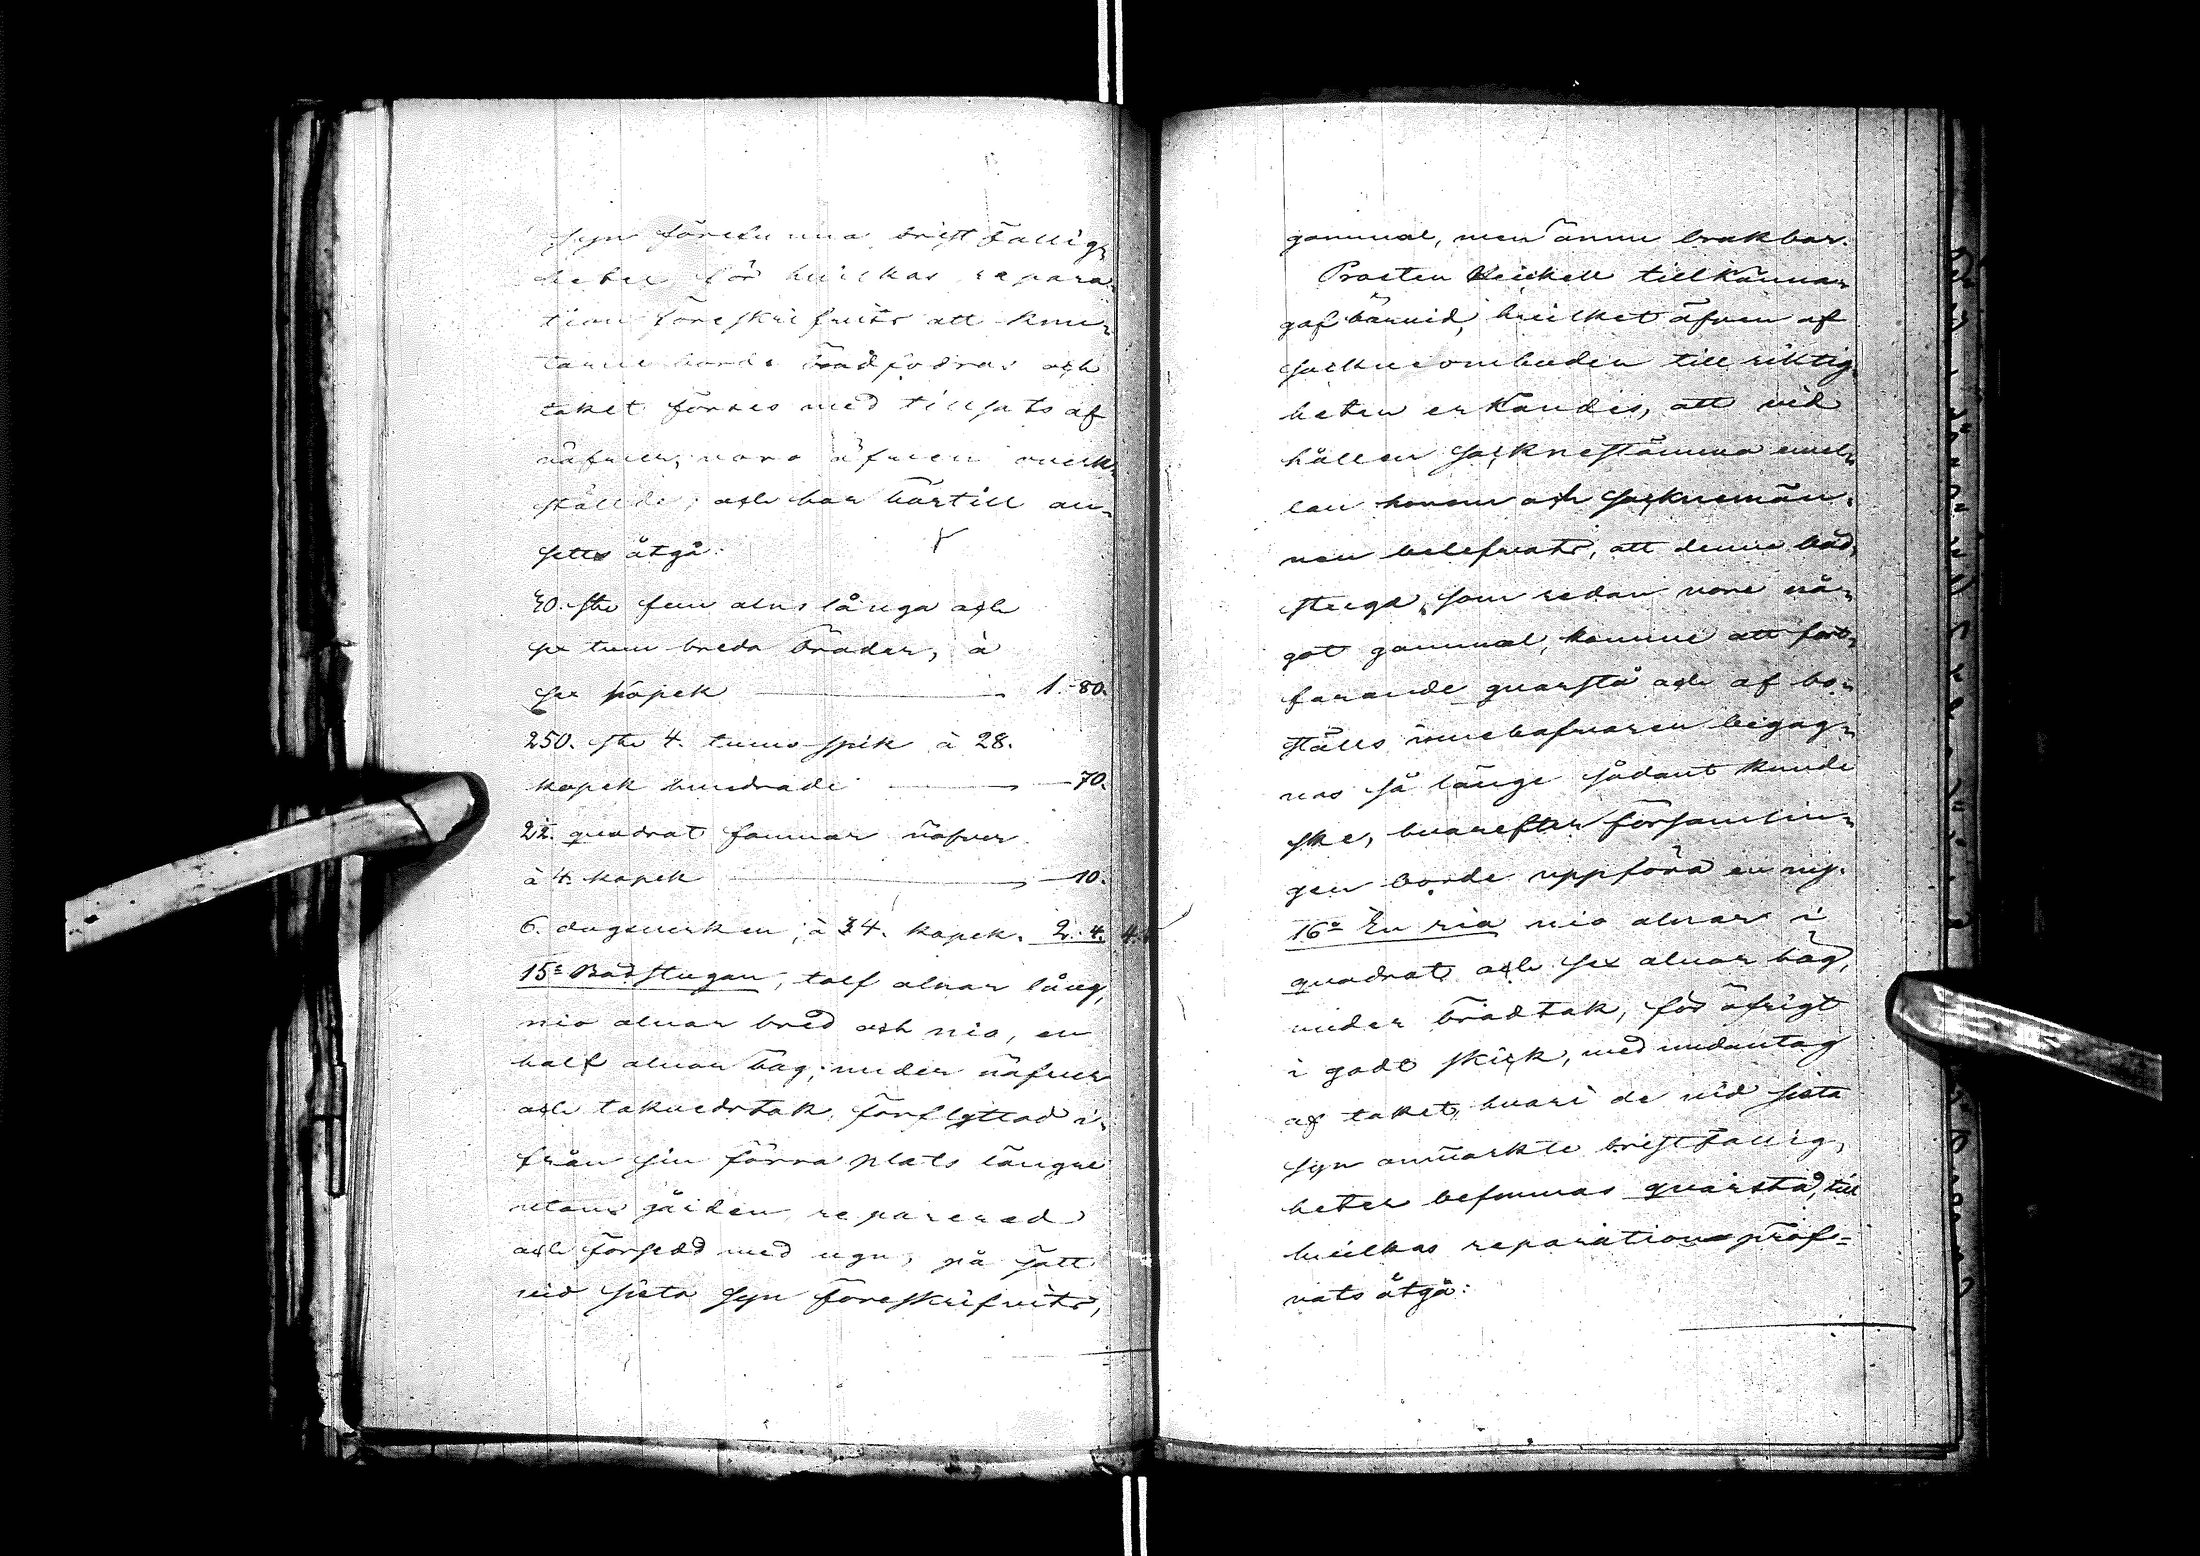 syn förefunna bristfällig-
heter för hvilkas repara-
tion föreskrifvits att knu-
tarne borde brädfodras och
taket förses med tillsats af
näfver, voro äfven verk-
ställde; och har härtill an-
setts åtgå:
30. stk fem alns långa och
sex tum breda bräder, à
sex kopek 1.80.
250. stk 4. tums spik à 28.
kopek hundrade 70.
2½. quadrat famnar näfver
à 4. kopek 10.
6. dagsverken, à 34. kopek. 2.4. 4.
15o Badstugan, tolf alnar lång,
nio alnar bred och nio, en
half alnar hög, under näfver
och takvedstak, förflyttad i-
från sin förra plats längre
utom gården, reparerad
och försedd med ugn, på sätt
vid sista syn föreskrifvits,
gammal, men ännu brukbar.
Prosten Reickell tillkänna-
gaf härvid, hvilket äfven af
sockneombuden till riktig-
heten erkändes, att vid
hållen socknestämma emel-
lan honom och socknemän-
nen blefvits, att denna bad-
stuga, som redan vore nå-
got gammal, komme att fort-
farande qvarstå och af bo-
ställs innehafvaren begag-
nas så länge sådant kunde
ske, hvarefter församlin-
gen borde uppföra en ny.
16o En ria nio alnar i
quadrat och sex alnar hög,
under brädtak, för öfrigt
i godt skick, med undantag
af taket, hvari de vid sista
syn anmärkte bristfällig-
heter befunnos qvarstå, till
hvilkas reparation pröf-
vats åtgå: